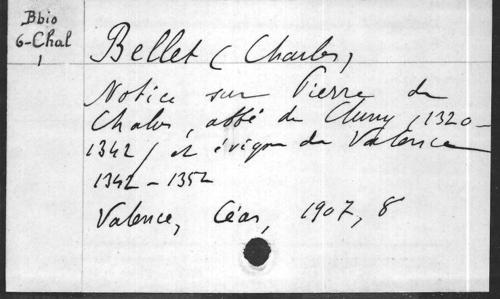 Bbio
6-Chal
1
Bellet (Charles)
Notice sur Pierre de
Chalus, abbé de Cluny (1320-
1342) et évêque de Valence
1342-1352
Valence, Céas, 1907, 8